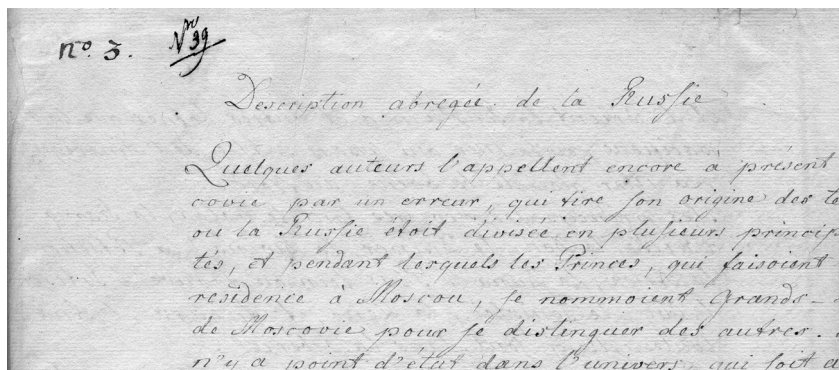 no. 3. Nro 39
Description abregée de la Russie
Quelques auteurs l'appellent encore à présent
covie par un erreur, qui tire son origine des te
ou la Russie étoit divisée en plusieurs princip
tés, et pendant lesquels les Princes, qui faisoient
residence à Moscou, se nommoient grands-
de Moscovie pour se distinguer des autres.
n'y a point d'état dans l'univers, qui soit a